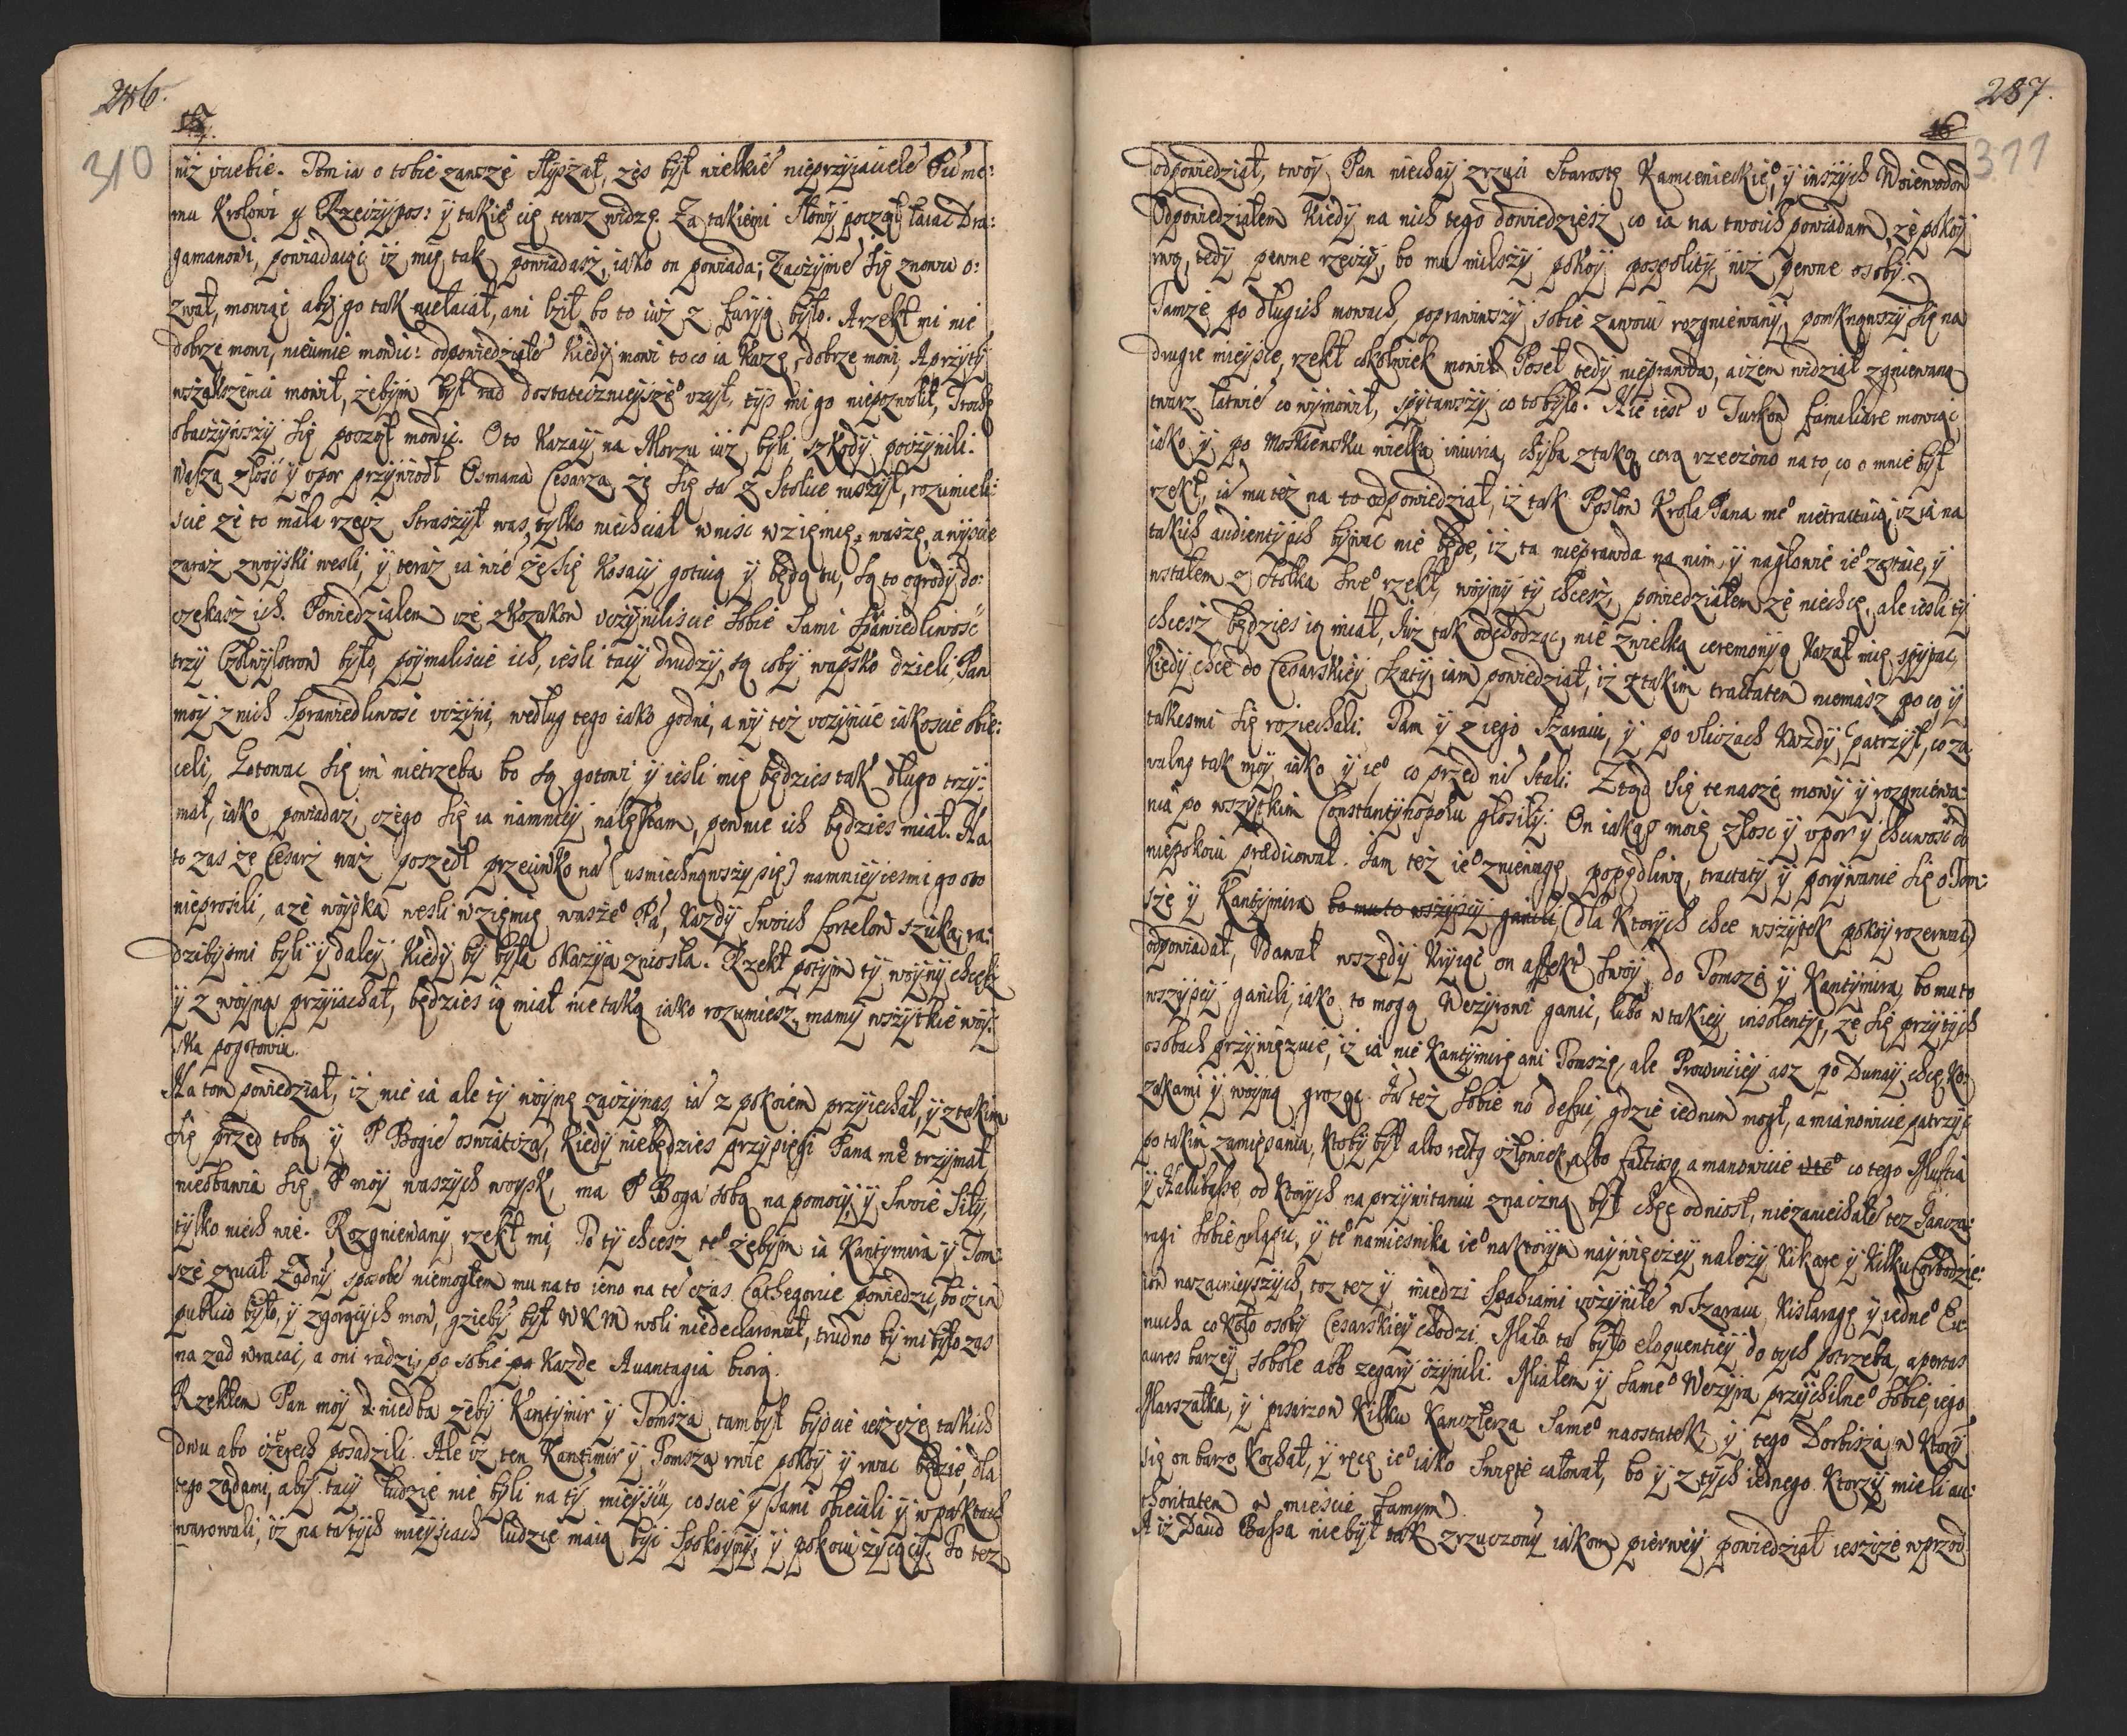 286.
15
310
niż u siebie. Tom ia o tobie zawszę słyszał, żes był wielkie nieprzyiaciele Pu me:
mu Krolowi y Rzeczypos: y takiego cię teraz widzę. Za takiemi słowy począł łaiac Dra:
gamanowi, powiadaiąc iż mię tak powiadasz, iako on powiada; Zaczyme się znowu o:
zwał, mowiąc aby go tak nie łaiał, ani bił bo to iuż z furyą było. A rzekł mi nie
dobrze mowi, nieumie mowic: odpowiedziałe Kiedy mowi to co ia Każę, dobrze mowi, A przy ty
wszakżemci mowił, żebym był rad dostatecznieyszego uzył, tys mi go niepozwolił, Trochę
obaczywszy się począł mowic. Oto Kozacy na Morzu iuż byli szkody poczynili.
Wasza złość y upor przywiodł Osmana Cesarza, że się tu z Stolice ruszył, rozumieli:
scie że to mała rzecz, Straszył was, tylko niechciał wnisc w ziemię waszę, a wyscie
zaraz z woyski weszli, y teraz ia wie że się Kosacy gotuią y będą tu, są to ogrody do:
czekasz ich. Powiedziałem że z Kozakow uczyniliscie sobie sami sprawiedliwość
trzy Czołny łotrow było, poymaliscie ich, iesli tacy drudzy są coby wapsko dzieli, Pan
moy z nich sprawiedliwosc uczyni, według tego iako godni, a wy też uczyncie iakoscie obie:
celi, Gotowac się im nietrzeba bo są gotowi, y iesli mię będzies tak długo trzy:
mał, iako powiadaz, czego się ia namniey nalękam, pewnie ich będzies miał. Na
to zas że Cesarz nasz poszedł przeciwko na (usmiechnąwszy się) namniey iesmi go o to
nieprosili, a że woyska weszli w ziemię waszego Pa, Kazdy swoich fortelow szuka, ra:
dzibysmi byli y daley Kiedy by była okazyia zniosła. Rzekł potym ty woyny chcesz
y z woyną przyiachał, będzies ią miał nie taką iako rozumiesz, mamy wszytkie woy:
ska pogotowiu.
Na tom powiedział, iż nie ia ale ty woynę zaczynas, ia z pokoiem przyiechał, y z takim
się przed tobą y P Bogie oswiatcza, Kiedy niebędzies przysięgi Pana mego trzymał,
nieobawia się P moy waszych woysk, ma P Boga sobą na pomocy, y swoie siły,
tylko niech wie. Rozgniewany rzekł mi, To ty chcesz tego żebym ia Kantymira y Tom:
szę zrucił Żadny sposobe niemogłem mu na to ieno na te czas Cathegorice powiedzie, bo iż in
publico było, y zgorących mow, gzieby był WKM woli niedeclarował, trudno by mi było zas
na zad wracac, a oni radzi, po sobie Kazde Avantagia biorą.
Rzekłem Pan moy niedba żeby Kantymir y Tomsza tam był byscie ieszcze takich
dwu abo czterech posadzili. Ale iż ten Kantimir y Tomsza rwie pokoy y rwac będzie, dla
tego żądami, aby tacy ludzie nie byli na ty mieyscu, coscie y sami obiecali y w paktach
warowali, iż na ta tych mieyscach ludzie maią być spokoyny, y pokoiu życzący. To tez

287.
16
311
odpowiedział, twoy Pan niechay zrzuci Starostę Kamienieckiego, y inszych Woiewodow
Odpowiedziałem Kiedy na nich tego dowiedziesz co ia na twoich powiadam, że pokoy
rwą, tedy pewne rzeczy, bo mu milszy pokoy pospolity niż pewne osoby.
Tamże po długich mowach, poprawiwszy sobie zawoiu rozgniewany, pomknąwszy się na
drugie mieysce, rzekł cokolwiek mowił Poseł tedy nieprawda, a iżem widział zgniewaną
twarz łatwie co wymowił, spytawszy co to było. Nie iest u Turkow familiare mowiąc
iako y po Moskiewsku wielka iniuria, chyba z taką cerą rzeczono na to, co o mnie był
rzekł, ia mu też na to odpowiedział, iż tak Posłow Krola Pana mego nietractuią, iż ia na
takich audientyich bywac nie będę, iż ta nieprawda na nim y na głowie iego zostaie, y
wstałem z stołka swego, rzekł, woyny ty chcesz, powiedziałem że niechcę, ale iesli ty
chcesz będzies ią miał, Iuż tak odchodząc, nie z wielką ceremonyą Kazał mię spytac,
Kiedy chcę do Cesarskiey szaty, iam powiedział, iż z takim tractatem niemasz po co, y
takesmi się roziechali: Tam y z iego szaraiu, y po uliczach Każdy patrzył, co za
wulną tak moy iako y iego co przed ni stali: Ztąd się te nasze mowy y rozgniewa:
nia po wszytkim Constantynopolu głosiły. On iakąś moię złosc y upor y chciwość do
niepokoiu prædicował. Iam też iego zniewagę, popędliwą, tractaty y porywanie się o Tom:
szę y Kantymira bo mu to wszyscy ganili (dla Ktorych chce wszytek pokoy rozerwac)
odpowiadał, Udawał wszędy Kryiąc on affekt swoy, do Tomszę y Kantymira, bo mu to
wszyscy ganili, iako to mogą Wezyrowi ganic, lubo w takiey insolentyi, że się przy tych
osobach przywięzuie, iż ia nie Kantymirę ani Tomszę, ale Prowinciey asz po Dunay chcę, Ko:
zakami y woyną grożąc. Ia też sobie no defui, gdzie iednum mogł, a mianowicie patrzyc
po takim zamięszaniu, Ktoby był albo recty człowiek, albo factiosy, a manowicie co tego Muftia
y Hallibasse, od Ktorych na przywitaniu znaczną był chęc odniosł, niezaniechałe tez Ianczar:
ragi sobie ulapic, y tego namiesnika iego na Ktorym naywięczey należy Kikaie y Kilku Corbadzi:
iow nazacnieyszych, toz tez y miedzi Spahiami uczyniłe w Szaraiu Kislaragę y iednego Eu:
nucha co Koło osoby Cesarskiey chodzi. Mało tu było eloquentiey do tych potrzeba, apertas
aures barzey sobole abo zegary czynili. Miałem y samego Wezyra przychilnego sobie, iego
Marszałka, y pisarzow Kilku Kanczlerza samego naostatek y tego Dorbisza, w Ktory
się on barzo Kochał, y ręcę iego iako swięte całował, bo y z tych iednego Ktorzy mieli au:
thoritatem w mieście samym.
A iż Daud Bassa niebył tak zrzuczony iakom pierwey powiedział ieszcze wprzod